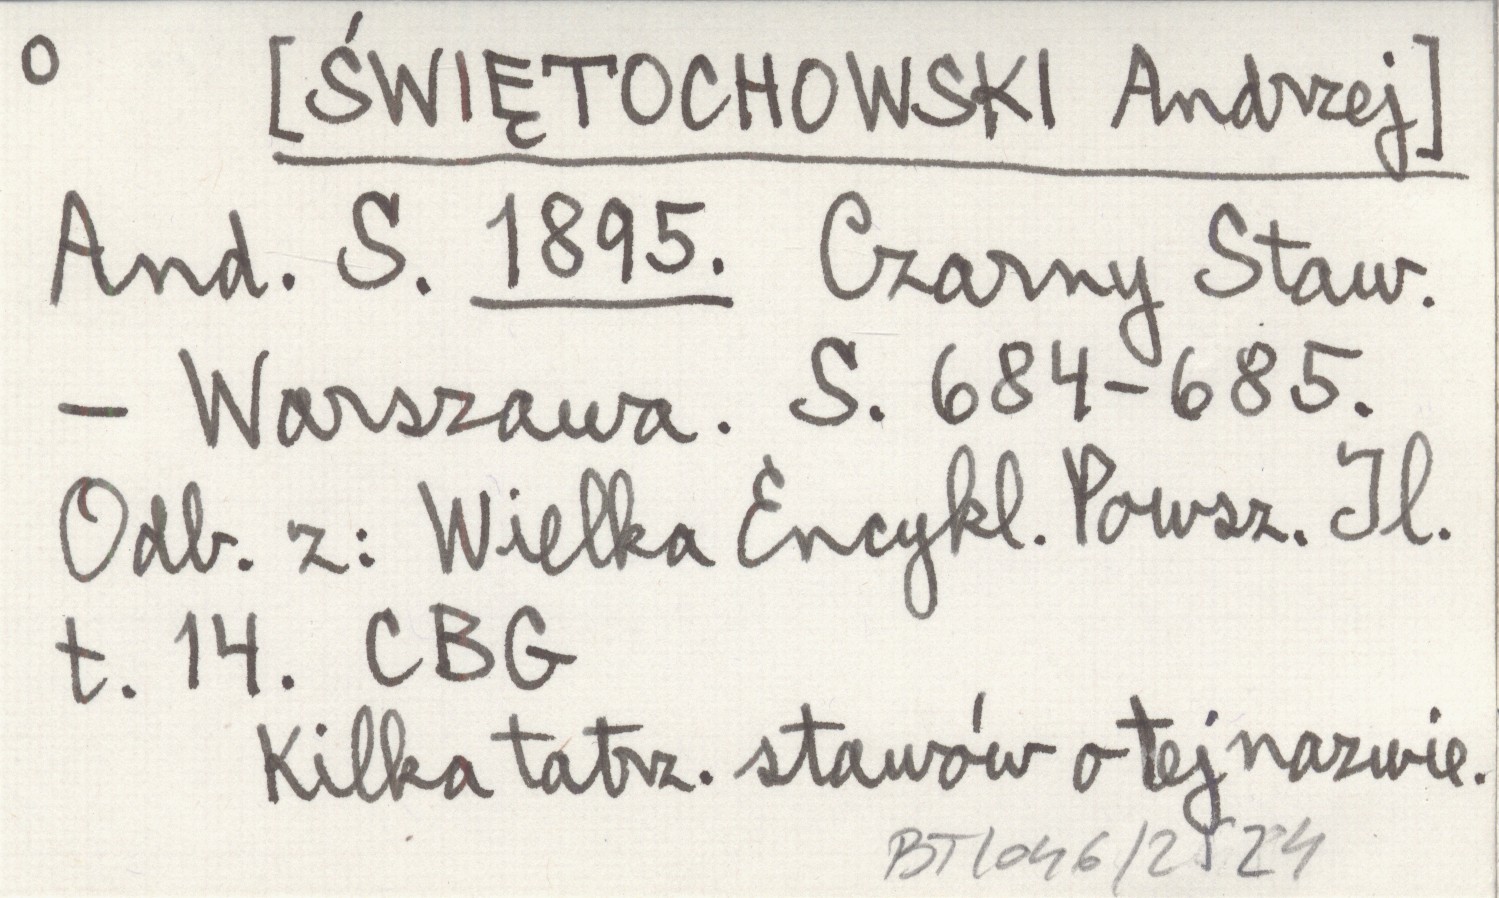 o [ŚWIĘTOCHOWSKI Andrzej]
And. S. 1895. Czarny Staw.
– Warszawa. S. 684–685.
Odb. z: Wielka Encykl. Powsz. Il.
t. 14. CBG
Kilka tatrz. stawów o tej nazwie.